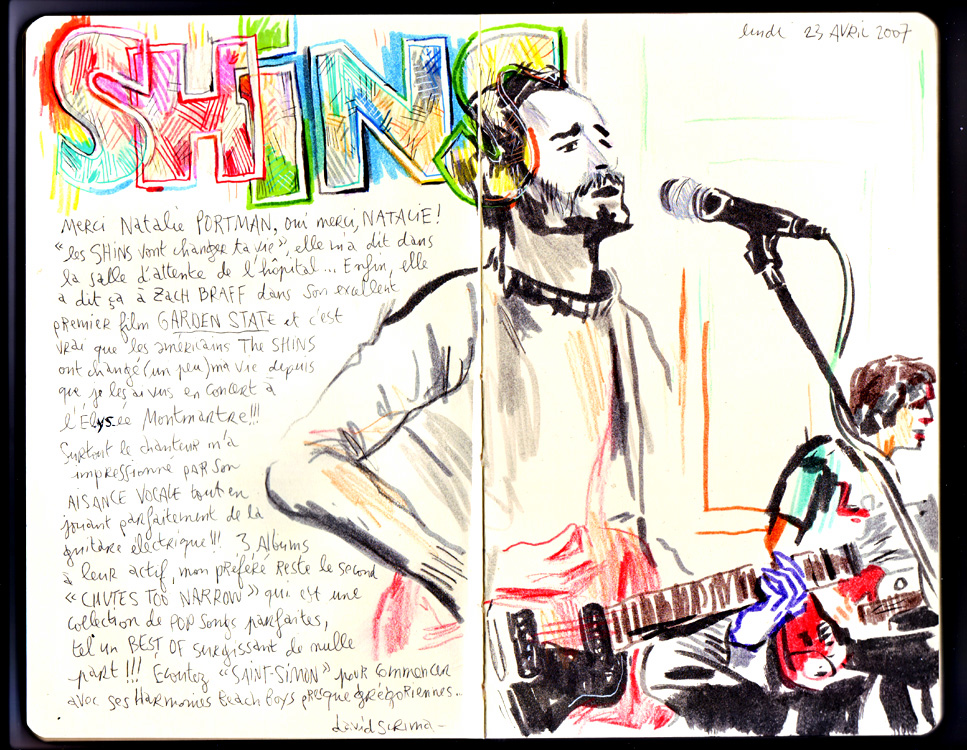 SHINS
lundi 23 AVRIL 2007
Merci Natalie PORTMAN, oui merci, NATALIE!
“les SHINS vont changer ta vie”, elle m'a dit dans
la salle d'attente de l'hôpital... Enfin, elle
a dit ça à Zach BRAFF dans son excellent
premier film GARDEN STATE et c'est
vrai que les américains The SHINS
ont changé (un peu) ma vie depuis
que je les ai vus en concert à
l'Élysée Montmartre!!!
Surtout le chanteur m'a
impressionné PAR Son
AISANCE VOCALE tout en
jouant parfaitement de la
guitare électrique!!! 3 Albums
à leur actif, mon préféré Reste le second
“CHUTES TOO NARROW” qui est une
collection de POP Songs parfaites,
tel un BEST OF surgissant de nulle
part!!! Ecoutez “SAINT-SIMON” pour commencer
avec ses Harmonies Beach Boys presque grégoriennes...
david scrima